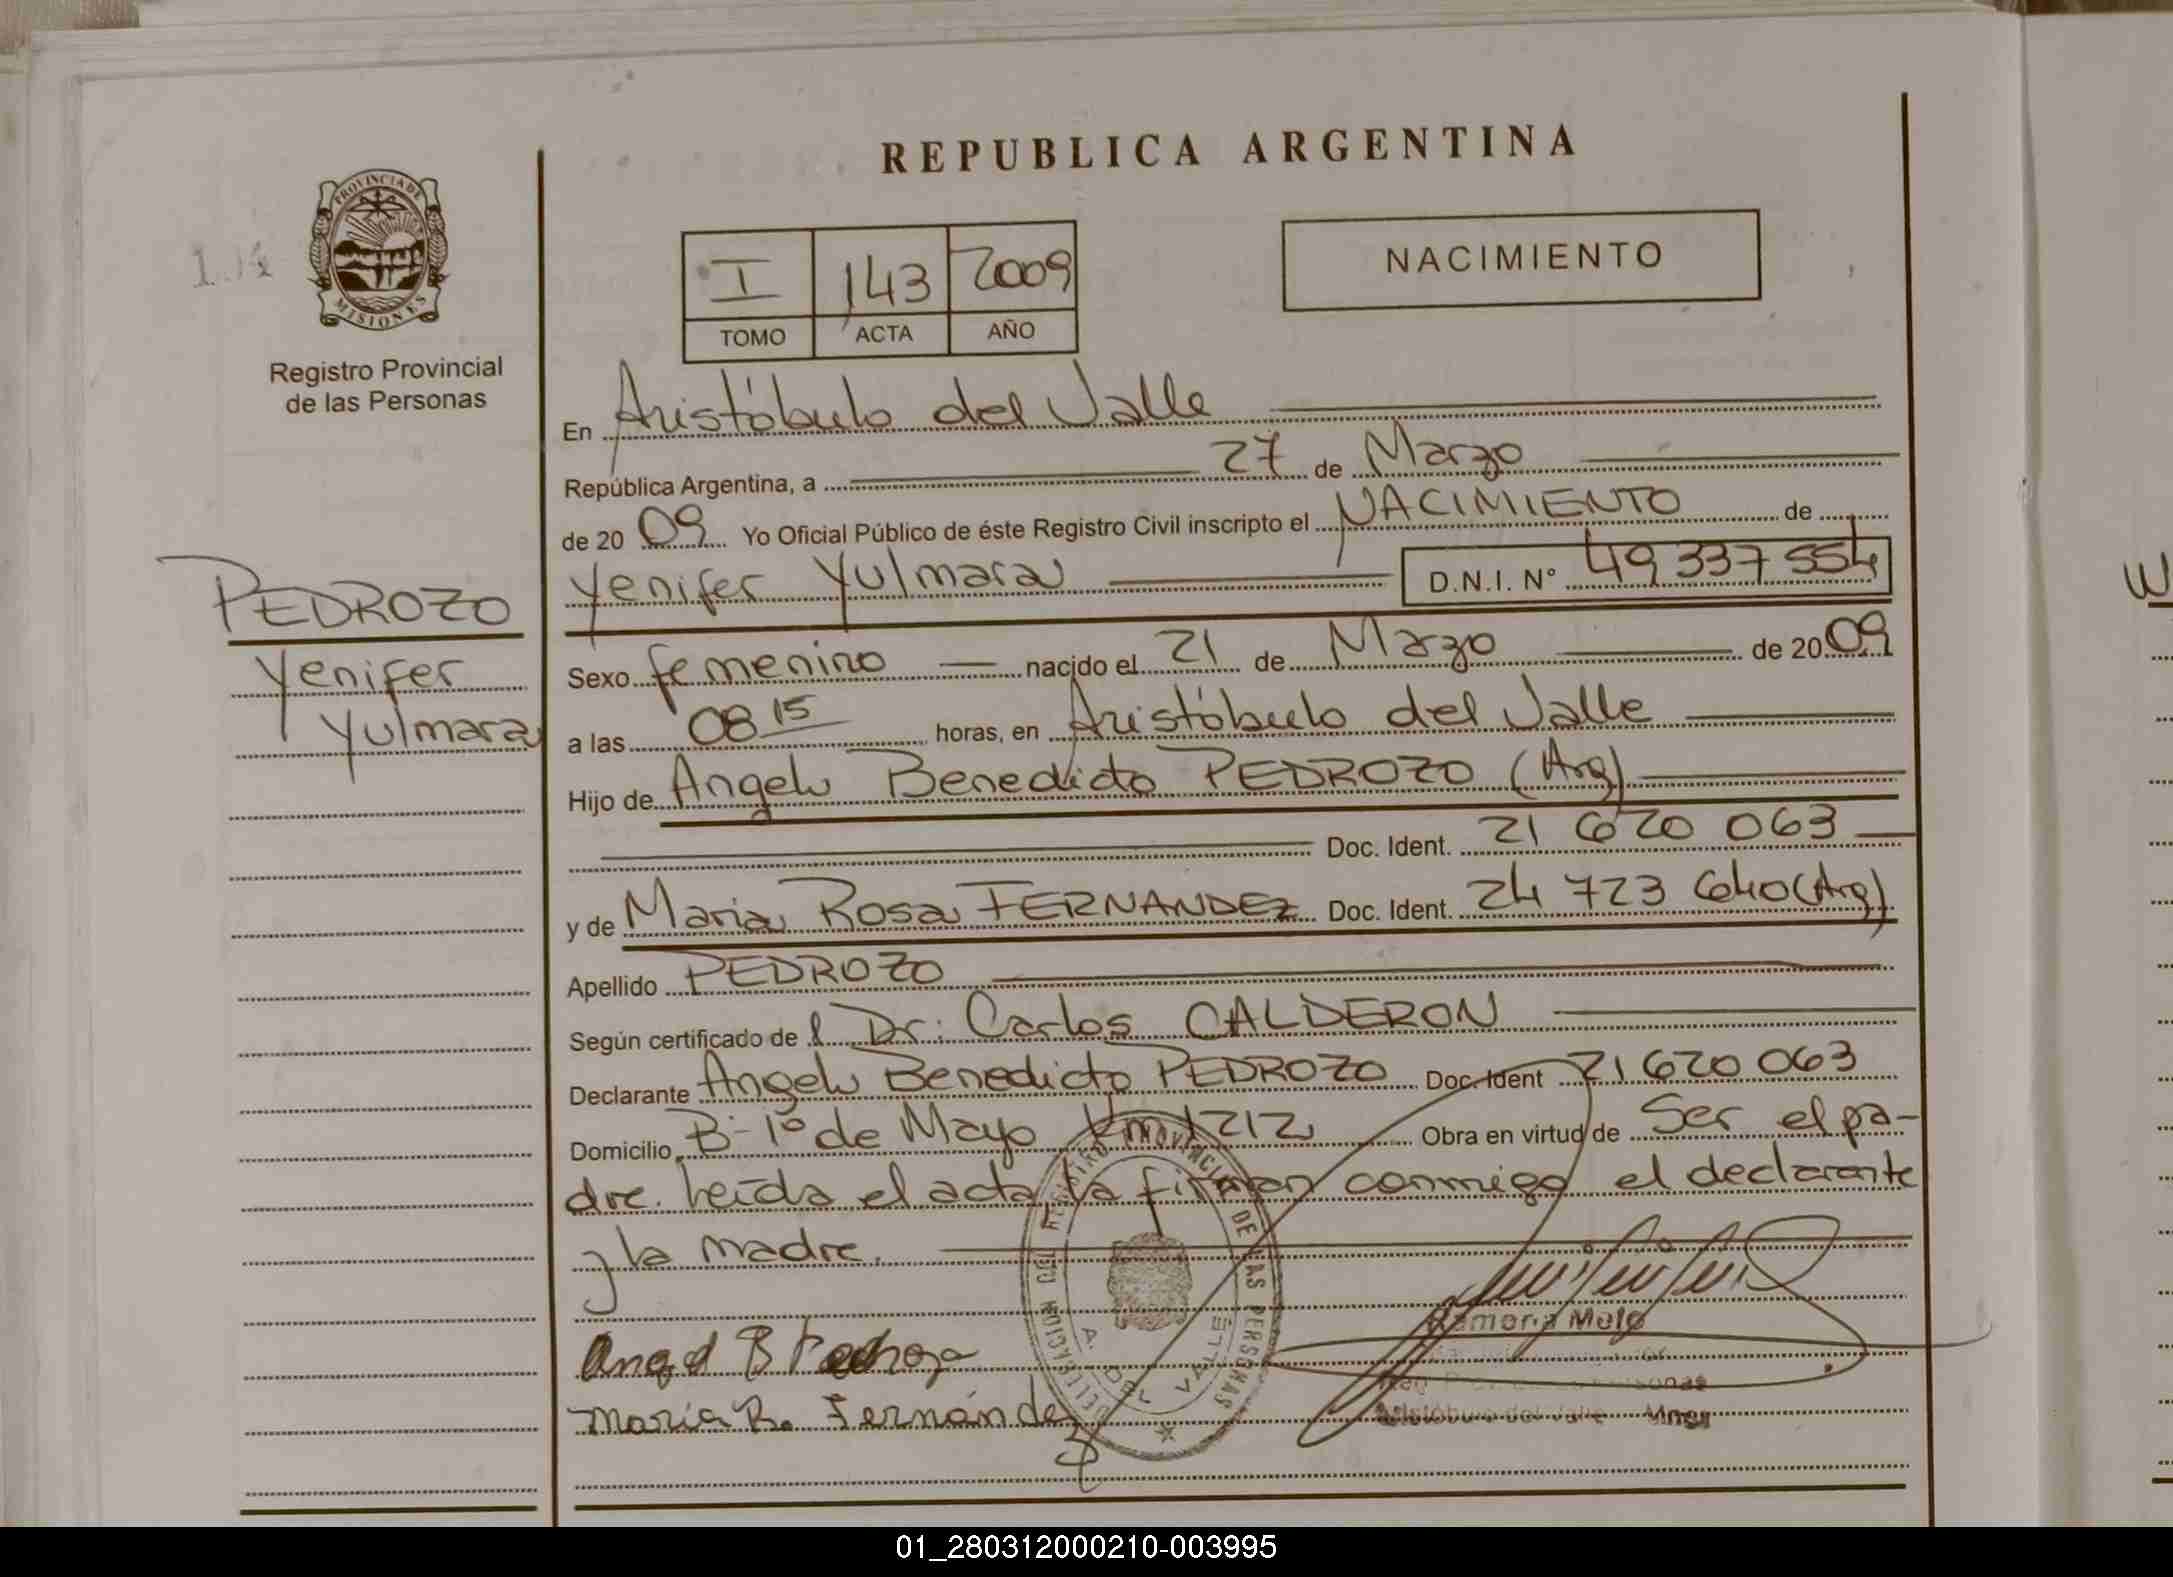 REPUBLICA ARGENTINA
PROVINCIA DE
MISIONES
Registro Provincial
de las Personas
I 143 2009
TOMO ACTA AÑO
NACIMIENTO
En Aristóbulo del Valle
República Argentina, a 27 de Marzo
de 20 09 Yo Oficial Público de éste Registro Civil inscripto el NACIMIENTO de
Yenifer Yulmara D.N.I. N° 49 337 554
PEDROZO
Yenifer
Yulmara
Sexo femenino nacido el 21 de Marzo de 2009
a las 08 15 horas, en Aristóbulo del Valle
Hijo de Angelo Benedicto PEDROZO (Arg)
Doc. Ident. 21 620 063
y de Maria Rosa FERNANDEZ Doc. Ident. 24 723 640 (Arg)
Apellido PEDROZO
Según certificado de l Dr. Carlos CALDERON
Declarante Angelo Benedicto PEDROZO Doc. Ident 21 620 063
Domicilio B- 1º de Mayo Km 1212 Obra en virtud de Ser el pa-
dre. Leída el acta la firman conmigo el declarante
y la madre.
REGISTRO PROVINCIAL DE LAS PERSONAS
DELEGACION
A. DEL VALLE
Angel B Pedrozo
Maria R. Fernández
Ramona Melo
Aristóbulo del Valle Mnes
01_280312000210-003995